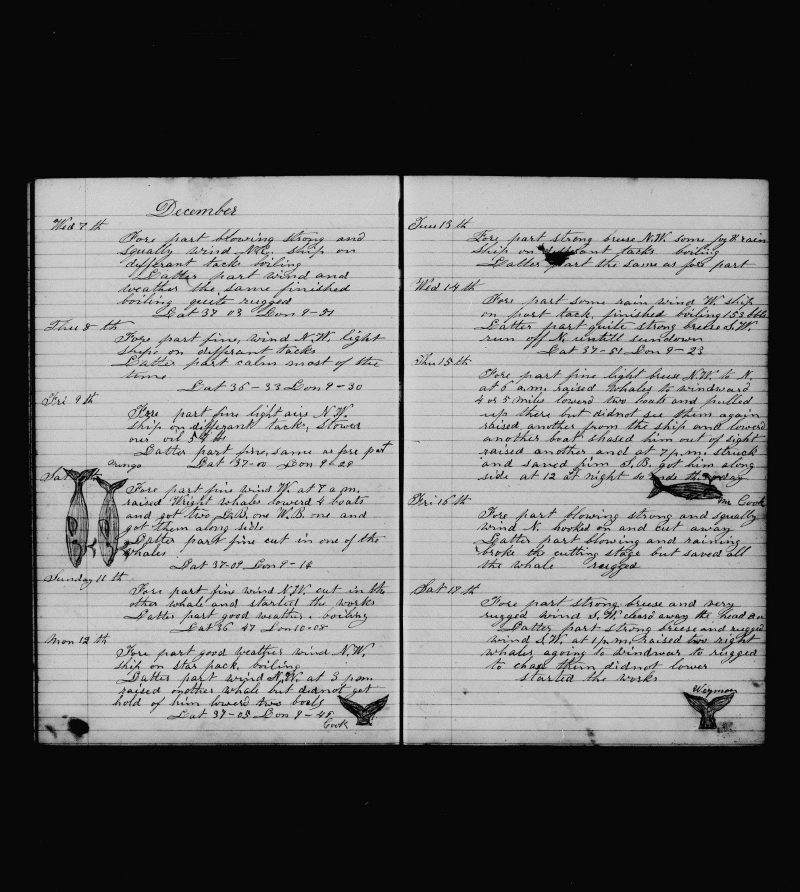 December
Wed 7 th
Fore part blowing strong and
squally wind N.E. ship on
differant tack boiling
Latter part wind and
weather the same finished
boiling quite rugged
Lat 37 03 Lon 9-51
Thu 8 th
Fore part fine, wind N.W. light
ships on differant tacks
Latter part calm most of the
time
Lat 36-33 Lon 9-30
Fri 9 th
Fore part fine light airs N.W.
ship on differant tacks, stowed
our oil
Latter part fine, same as fore part
Lat 37-00 Lon 9-28
Sat
Fore part fine wind W. at 7 a.m.
raised Wright whales lowerd 4 boats
and got two L.B. one W.B. one and
got them along side
Latter part fine cut in one of the
whales
Lat 37-09 Lon 9-14
Sunday 11 th
Fore part fine wind N.W. cut in the
other whale and started the works
Latter part good weather, boiling
Lat 36 47 Lon 10-05
Mon 12 th
Fore part good weather wind N.W.
ship on star pack, boiling
Latter part wind N.W. at 3 p.m.
raised another whale but did not get
hold of him lowerd two boats
Lat 37-05 Lon 9-48
Cook
Tues 13 th
Fore part strong breese N.W. some fog & rain
Ship on tacks boiling
Latter part the same as fore part
Wed 14 th
Fore part some rain wind W. ship
on port tack, finished boiling 153 bbls
Latter part quite strong breese S.W.
run off N. untill sundown
Lat 37-51 Lon 9-23
Thu 15 th
Fore part fine light breese N.W. to N.
at 6 a.m. raised whales to windward
4 or 5 miles lowerd two boats and pulled
up there but didnot see them again
raised another from the ship and lowerd
another boat chased him out of sight
raised another and at 7 p.m. struck
and saved him S.B. got him along
side at 12 at night so ends the day
Mr Cook
Fri 16 th
Fore part blowing strong and squally
wind N. hooked on and cut away
Latter part blowing and raining
broke the cutting stage but saved all
the whale rugged
Sat 17 th
Fore part strong breese and very
rugged wind S.W. cleard away the head
Latter part strong breese and rugged
wind S.W. at 1 p.m. raised two right
whales agoing to windwar to rugged
to chase them didnot lower
started the works